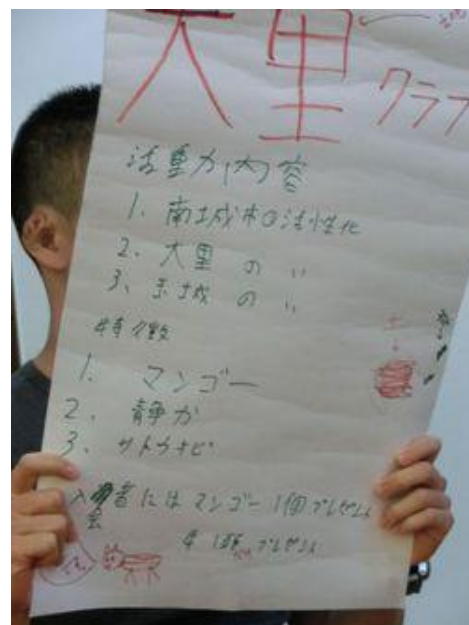 大里 クラブ
活動内容
1. 南城市の活性化
2. 大里の〃
3. 玉城の〃
特徴
1. マンゴー
2. 静か
3. サトウキビ
入会者にはマンゴー1個プレゼント
牛1頭 プレゼント